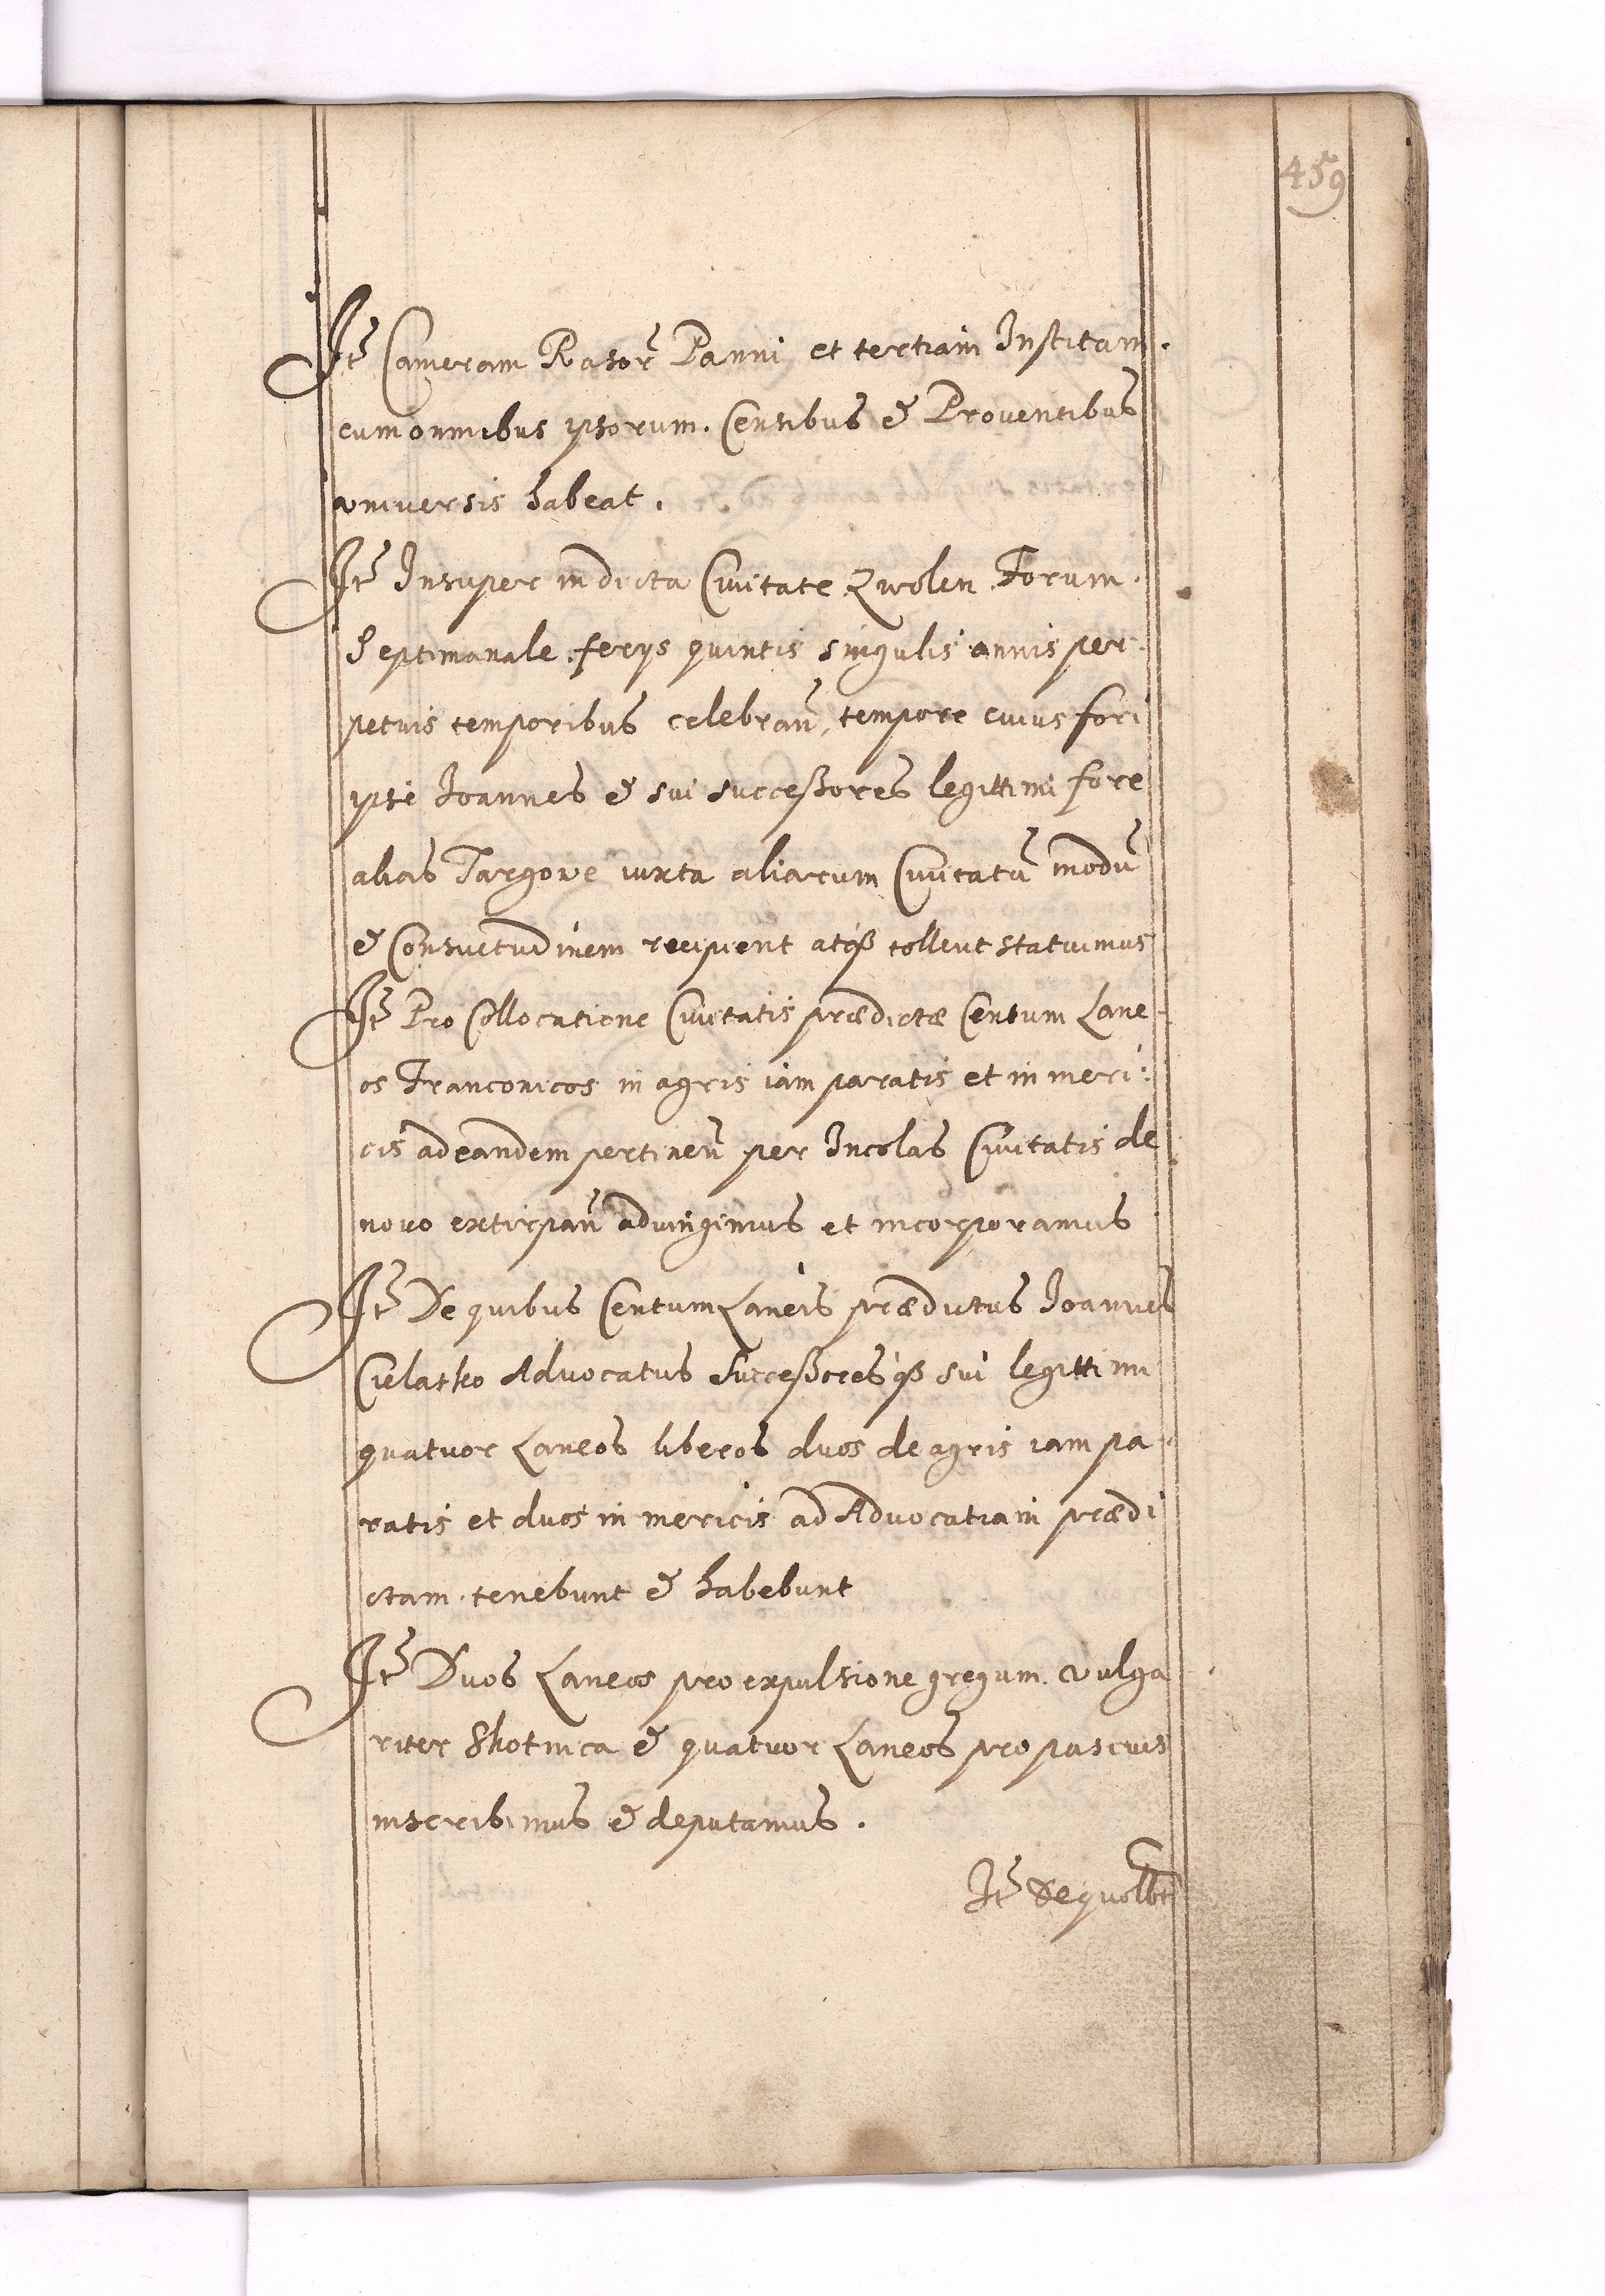 459
Itẽ Cameram Rasor̃ Panni et tertiam Institam.
cum omnibus ypsorum. Censibus & Proventibus
vniversis habeat.
Itẽ Insuper in dicta Civitate Zwolen Forum.
Septimanale ferys quintis singulis annis per-
petuis temporibus celebrañ, tempore cuius fori
ypse Joannes & sui successores legittimi fore
alias Targowe iuxta aliarum Civitatũ modũ
& Consuetudinem recipient atqß tollent statuimus
Itẽ Pro Collocatione Civitatis prædictæ Centum Lane-
os Franconicos in agris iam paratis et in meri:
cis ad eandem pertineñ per Incolas Civitatis de
novo extirpañ adiungimus et incorporamus
Itẽ De quibus Centum Laneis prædictus Joannes
Cielatko Advocatus Successoresqß sui legittimi
quatuor Laneos liberos duos de agris iam pa-
ratis et duos in mericis ad Advocatiam prædi
ctam. tenebunt & habebunt
Itẽ Duos Laneos pro expulsione gregum. vulga
riter Skotnica & quatuor Laneos pro pascuis
inscribimus & deputamus.
Itẽ De quolbt